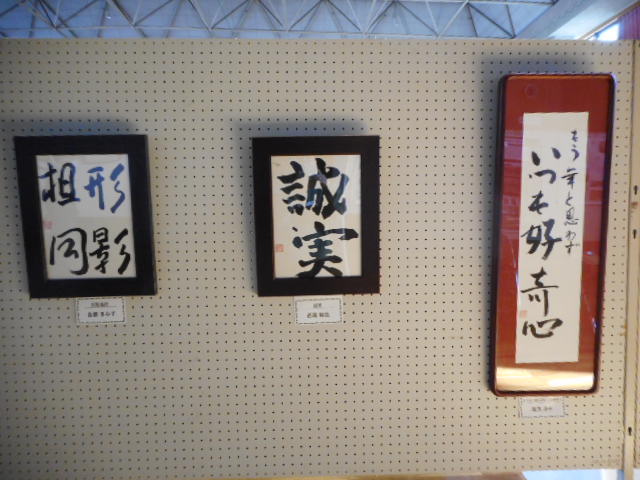 形影
相同
誠実
もう年と思わず
いつも好奇心
誠実